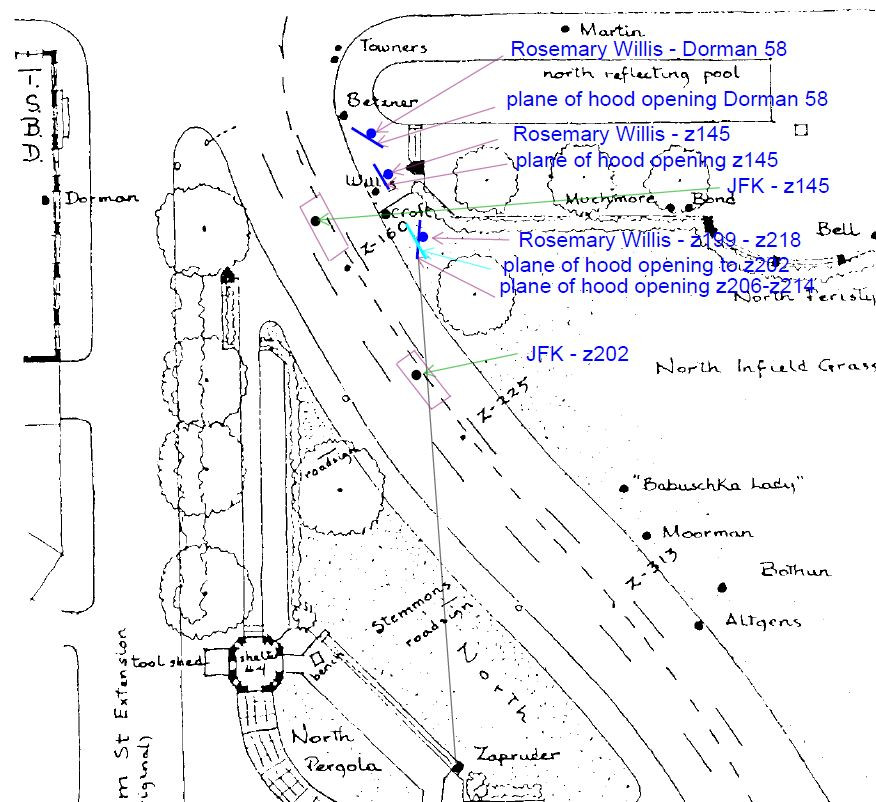 Martin
Towners
Rosemary Willis - Dorman 58
north reflecting pool
T.
S.
B.
D.
Betzner
plane of hood opening Dorman 58
Rosemary Willis - z145
plane of hood opening z145
Willis
JFK - z145
Dorman
Muchmore
Bond
Croft
Z-160
Bell
Rosemary Willis - z199 - z218
plane of hood opening to z202
plane of hood opening z206-z214
North Peristy
JFK - z202
North Infield Grass
Z-225
roadsign
"Babuschka Lady"
Moorman
Z-313
Bothun
Stemmons
roadsign
Altgens
North
tool shed
shelter
bench
m St Extension
iginal)
North
Pergola
Zapruder